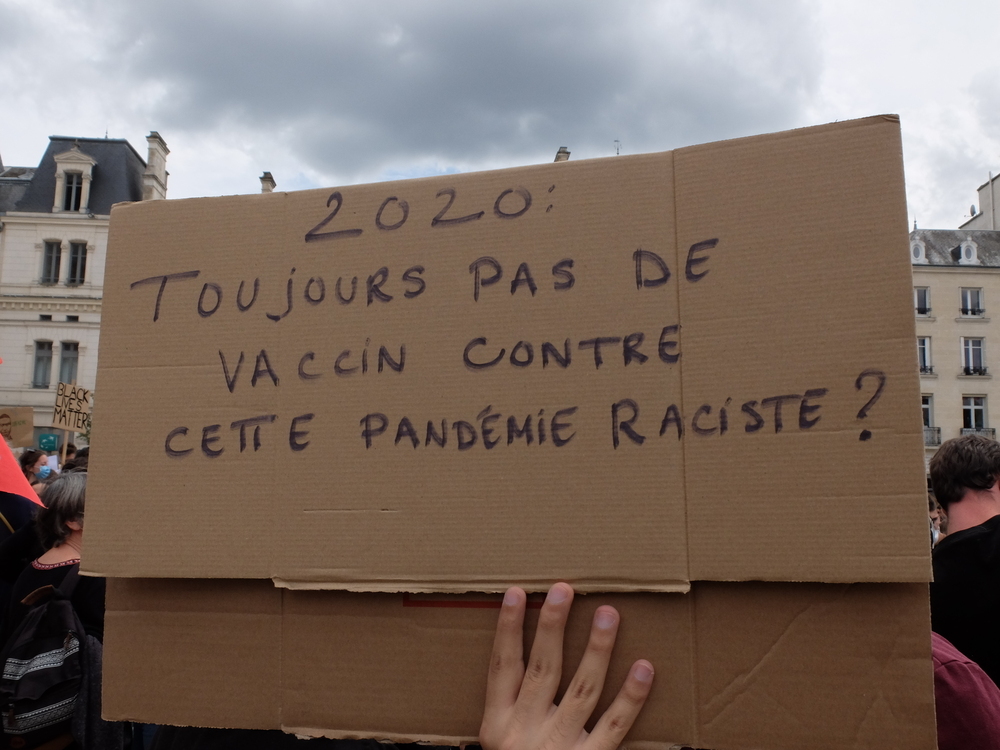 2020:
TOUjOURS PAS DE
VACCiN CONTRE
CETTE PANDÉMiE RACiSTE ?
BLACK
LIVES
MATTER